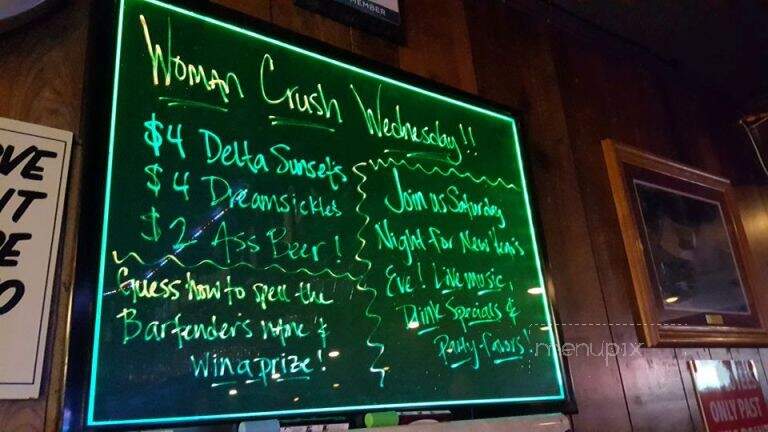 MEMBER
Woman Crush Wednesday!!
$4 Delta Sunsets
$4 Dreamsickles
$2 Ass Beer!
Guess how to spell the
Bartender's name &
win a prize!
Join us Saturday
Night for New Year's
Eve! Live music,
Drink Specials &
Party favors!
VE
IT
E
O
menupix
ONLY PAST